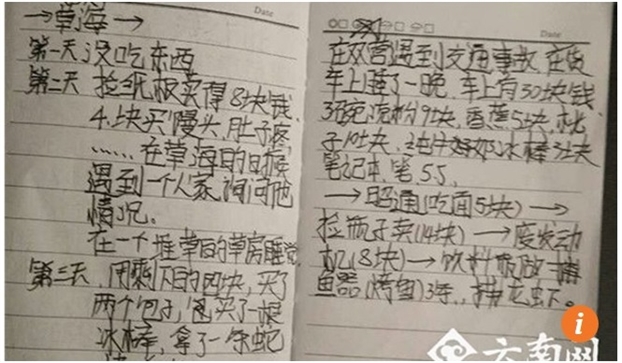 →草海→
第一天没吃东西
第二天 捡纸板买得8块钱
4.块买馒头.肚子疼
……在草海的时候
遇到一个人家询问他
情况。
在一个堆草的草房睡觉
第三天.用剩下的四块,买了
两个包子,包买了一根
冰棒,拿了一条蛇
Date
Date
在双营遇到交通事故 在货
车上睡了一晚.车上有30块钱
3碗凉粉9块.香蕉5块.桃
子10块.冰棒3块
笔记本.笔5.5、
→昭通(吃面5块)→
捡瓶子卖(14块)→废发动
机(8块)→饮料瓶做一捕
鱼器(烤鱼)3.
云南网
i